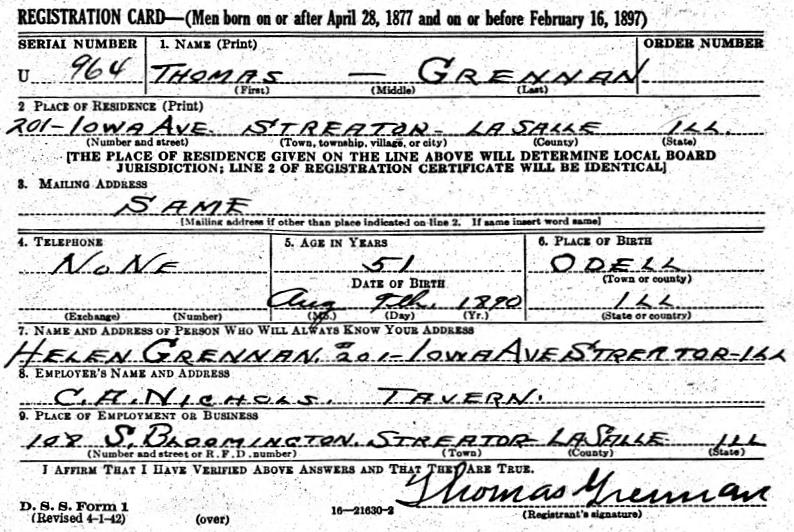 REGISTRATION CARD—(Men born on or after April 28, 1877 and on or before February 16, 1897)
SERIAL NUMBER 1. NAME (Print) ORDER NUMBER
U 964 THOMAS — GRENNAN
(First) (Middle) (Last)
2 PLACE OF RESIDENCE (Print)
201-IOWA AVE. STREATOR- LASALLE ILL.
(Number and street) (Town, township, village, or city) (County) (State)
[THE PLACE OF RESIDENCE GIVEN ON THE LINE ABOVE WILL DETERMINE LOCAL BOARD
JURISDICTION; LINE 2 OF REGISTRATION CERTIFICATE WILL BE IDENTICAL]
3. MAILING ADDRESS
SAME
[Mailing address if other than place indicated on line 2. If same insert word same]
4. TELEPHONE 5. AGE IN YEARS 6. PLACE OF BIRTH
NONE 51 ODELL
DATE OF BIRTH (Town or county)
Aug 9th. 1890 ILL
(Exchange) (Number) (Mo.) (Day) (Yr.) (State or country)
7. NAME AND ADDRESS OF PERSON WHO WILL ALWAYS KNOW YOUR ADDRESS
HELEN GRENNAN. 201-IOWA AVE STREATOR-ILL
8. EMPLOYER'S NAME AND ADDRESS
C.A. NICHOLS. TAVERN.
9. PLACE OF EMPLOYMENT OR BUSINESS
108 S. BLOOMINGTON. STREATOR LASALLE ILL
(Number and street or R. F. D. number) (Town) (County) (State)
I AFFIRM THAT I HAVE VERIFIED ABOVE ANSWERS AND THAT THEY ARE TRUE.
Thomas Grennan
D. S. S. Form 1
(Revised 4-1-42) (over) 16—21630-2 (Registrant's signature)